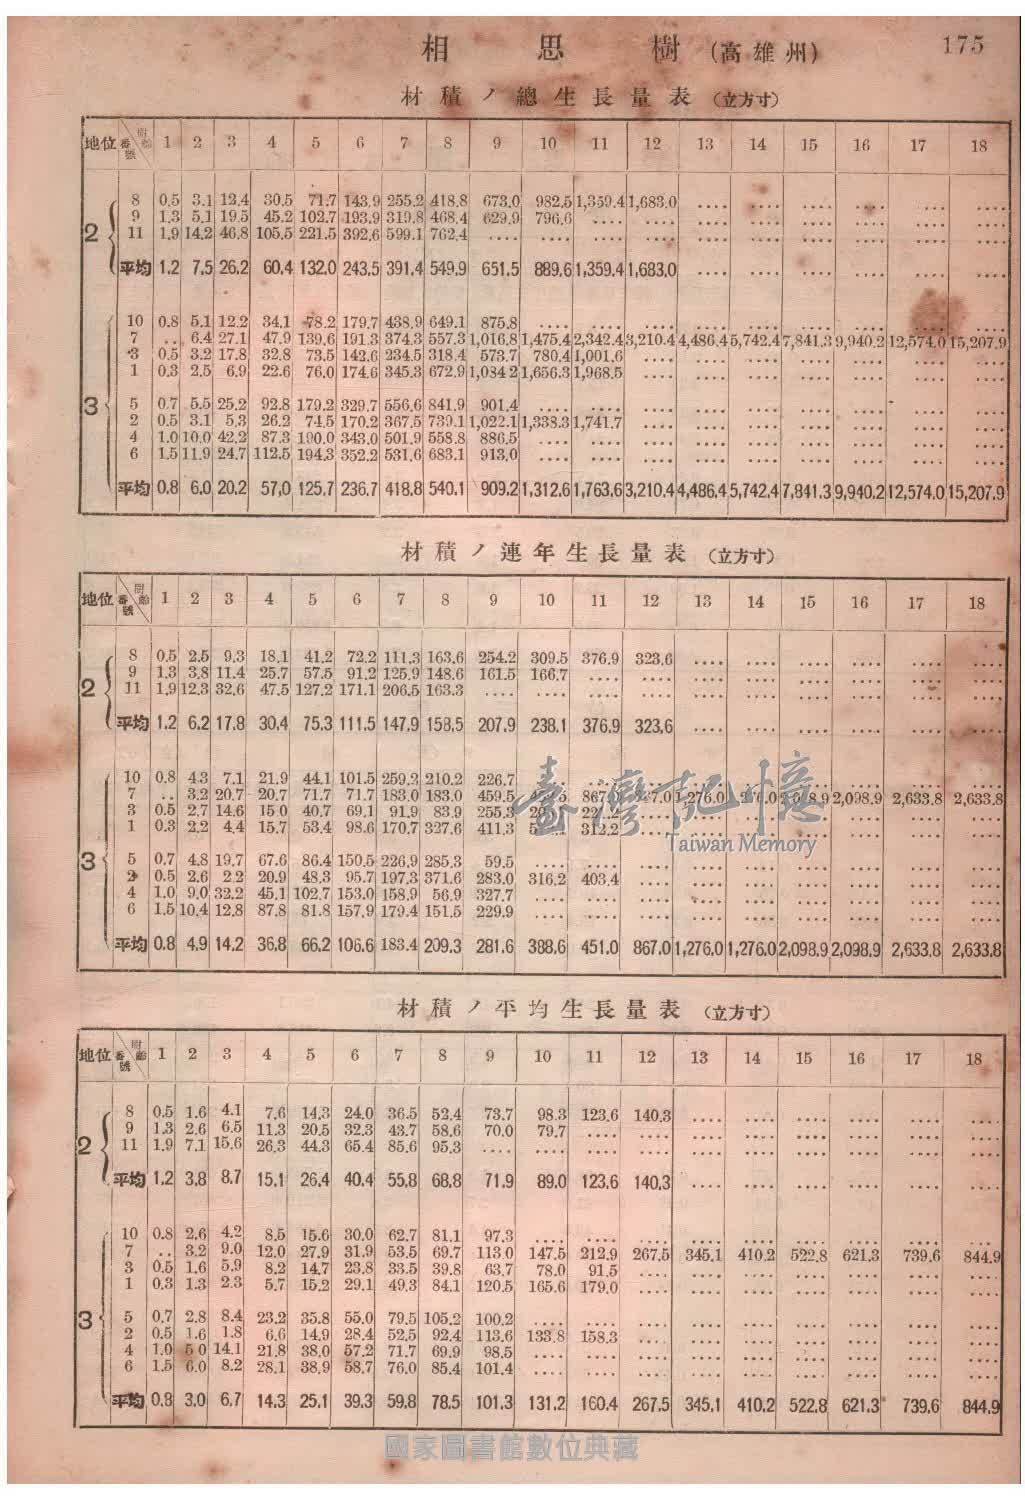 175
相思樹 (高雄州)
材積ノ總生長量表 (立方寸)
地位 番號 樹齡 1 2 3 4 5 6 7 8 9 10 11 12 13 14 15 16 17 18
2
8 0.5 3.1 12.4 30.5 71.7 143.9 255.2 418.8 673.0 982.5 1,359.4 1,683.0 .... .... .... .... .... ....
9 1.3 5.1 19.5 45.2 102.7 193.9 319.8 468.4 629.9 796.6 .... .... .... .... .... .... .... ....
11 1.9 14.2 46.8 105.5 221.5 392.6 599.1 762.4 .... .... .... .... .... .... .... .... .... ....
平均 1.2 7.5 26.2 60.4 132.0 243.5 391.4 549.9 651.5 889.6 1,359.4 1,683.0 .... .... .... .... .... ....
3
10 0.8 5.1 12.2 34.1 78.2 179.7 438.9 649.1 875.8 .... .... .... .... .... .... .... .... ....
7 .. 6.4 27.1 47.9 139.6 191.3 374.3 557.3 1,016.8 1,475.4 2,342.4 3,210.4 4,486.4 5,742.4 7,841.3 9,940.2 12,574.0 15,207.9
3 0.5 3.2 17.8 32.8 73.5 142.6 234.5 318.4 573.7 780.4 1,001.6 .... .... .... .... .... .... ....
1 0.3 2.5 6.9 22.6 76.0 174.6 345.3 672.9 1,084.2 1,656.3 1,968.5 .... .... .... .... .... .... ....
5 0.7 5.5 25.2 92.8 179.2 329.7 556.6 841.9 901.4 .... .... .... .... .... .... .... .... ....
2 0.5 3.1 5.3 26.2 74.5 170.2 367.5 739.1 1,022.1 1,338.3 1,741.7 .... .... .... .... .... .... ....
4 1.0 10.0 42.2 87.3 190.0 343.0 501.9 558.8 886.5 .... .... .... .... .... .... .... .... ....
6 1.5 11.9 24.7 112.5 194.3 352.2 531.6 683.1 913.0 .... .... .... .... .... .... .... .... ....
平均 0.8 6.0 20.2 57.0 125.7 236.7 418.8 540.1 909.2 1,312.6 1,763.6 3,210.4 4,486.4 5,742.4 7,841.3 9,940.2 12,574.0 15,207.9
材積ノ連年生長量表 (立方寸)
地位 番號 樹齡 1 2 3 4 5 6 7 8 9 10 11 12 13 14 15 16 17 18
2
8 0.5 2.5 9.3 18.1 41.2 72.2 111.3 163.6 254.2 309.5 376.9 323.6 .... .... .... .... .... ....
9 1.3 3.8 11.4 25.7 57.5 91.2 125.9 148.6 161.5 166.7 .... .... .... .... .... .... .... ....
11 1.9 12.3 32.6 47.5 127.2 171.1 206.5 163.3 .... .... .... .... .... .... .... .... .... ....
平均 1.2 6.2 17.8 30.4 75.3 111.5 147.9 158.5 207.9 238.1 376.9 323.6 .... .... .... .... .... ....
3
10 0.8 4.3 7.1 21.9 44.1 101.5 259.2 210.2 226.7 .... .... .... .... .... .... .... .... ....
7 .. 3.2 20.7 20.7 71.7 71.7 183.0 183.0 459.5 1,276.0 2,098.9 2,633.8 2,633.8
3 0.5 2.7 14.6 15.0 40.7 69.1 91.9 83.9 255.3 .... .... .... .... .... ....
1 0.3 2.2 4.4 15.7 53.4 98.6 170.7 327.6 411.3 312.2 .... .... .... .... .... .... ....
5 0.7 4.8 19.7 67.6 86.4 150.5 226.9 285.3 59.5 .... .... .... .... .... .... .... .... ....
2 0.5 2.6 2.2 20.9 48.3 95.7 197.3 371.6 283.0 316.2 403.4 .... .... .... .... .... .... ....
4 1.0 9.0 32.2 45.1 102.7 153.0 158.9 56.9 327.7 .... .... .... .... .... .... .... .... ....
6 1.5 10.4 12.8 87.8 81.8 157.9 179.4 151.5 229.9 .... .... .... .... .... .... .... .... ....
平均 0.8 4.9 14.2 36.8 66.2 106.6 183.4 209.3 281.6 388.6 451.0 867.0 1,276.0 1,276.0 2,098.9 2,098.9 2,633.8 2,633.8
臺灣記憶
Taiwan Memory
材積ノ平均生長量表 (立方寸)
地位 番號 樹齡 1 2 3 4 5 6 7 8 9 10 11 12 13 14 15 16 17 18
2
8 0.5 1.6 4.1 7.6 14.3 24.0 36.5 52.4 73.7 98.3 123.6 140.3 .... .... .... .... .... ....
9 1.3 2.6 6.5 11.3 20.5 32.3 43.7 58.6 70.0 79.7 .... .... .... .... .... .... .... ....
11 1.9 7.1 15.6 26.3 44.3 65.4 85.6 95.3 .... .... .... .... .... .... .... .... .... ....
平均 1.2 3.8 8.7 15.1 26.4 40.4 55.8 68.8 71.9 89.0 123.6 140.3 .... .... .... .... .... ....
3
10 0.8 2.6 4.2 8.5 15.6 30.0 62.7 81.1 97.3 .... .... .... .... .... .... .... .... ....
7 .. 3.2 9.0 12.0 27.9 31.9 53.5 69.7 113.0 147.5 212.9 267.5 345.1 410.2 522.8 621.3 739.6 844.9
3 0.5 1.6 5.9 8.2 14.7 23.8 33.5 39.8 63.7 78.0 91.5 .... .... .... .... .... .... ....
1 0.3 1.3 2.3 5.7 15.2 29.1 49.3 84.1 120.5 165.6 179.0 .... .... .... .... .... .... ....
5 0.7 2.8 8.4 23.2 35.8 55.0 79.5 105.2 100.2 .... .... .... .... .... .... .... .... ....
2 0.5 1.6 1.8 6.6 14.9 28.4 52.5 92.4 113.6 133.8 158.3 .... .... .... .... .... .... ....
4 1.0 5.0 14.1 21.8 38.0 57.2 71.7 69.9 98.5 .... .... .... .... .... .... .... .... ....
6 1.5 6.0 8.2 28.1 38.9 58.7 76.0 85.4 101.4 .... .... .... .... .... .... .... .... ....
平均 0.8 3.0 6.7 14.3 25.1 39.3 59.8 78.5 101.3 131.2 160.4 267.5 345.1 410.2 522.8 621.3 739.6 844.9
國家圖書館數位典藏